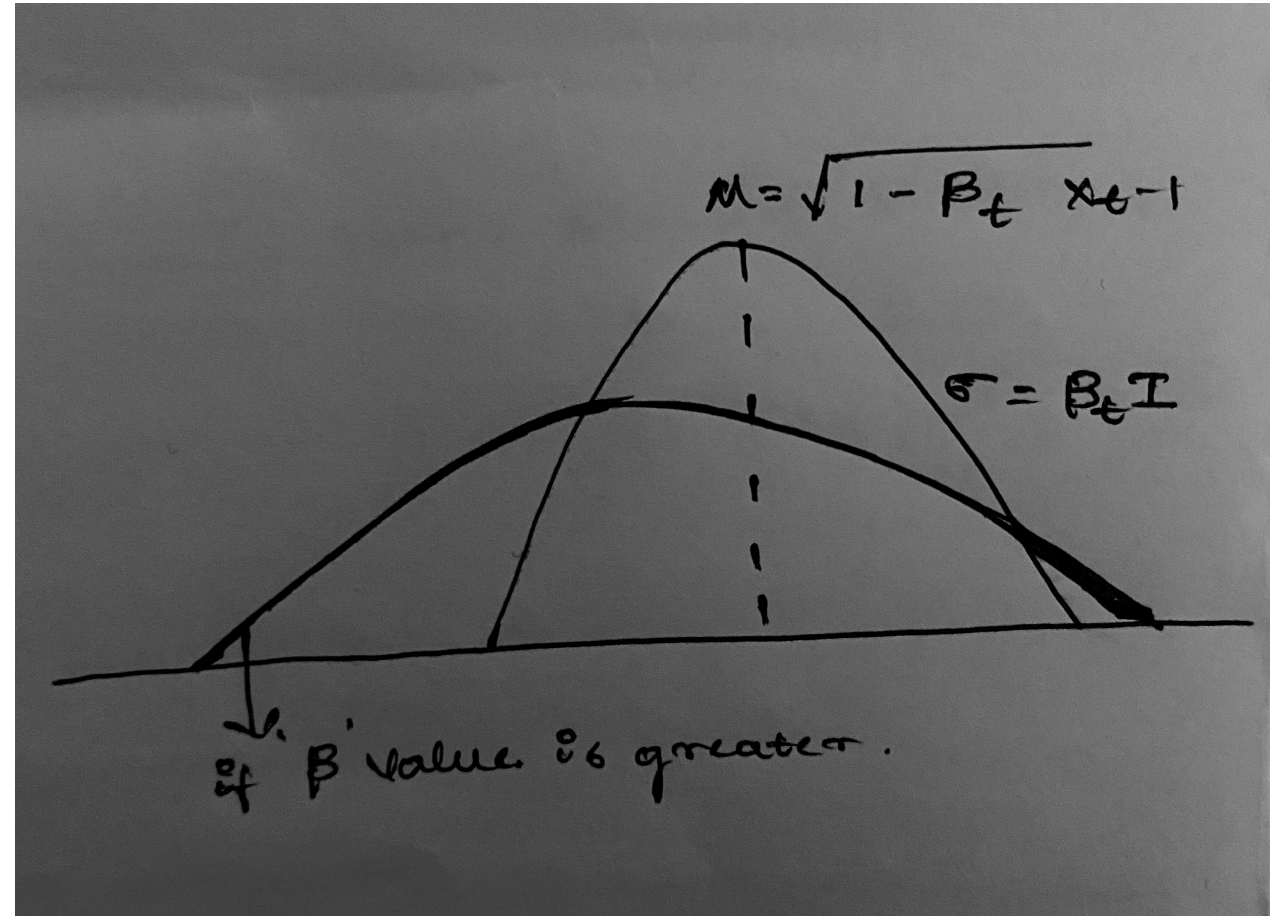 μ = √1 - βₜ xₜ-1
σ = βₜ I
if 'β' value is greater.